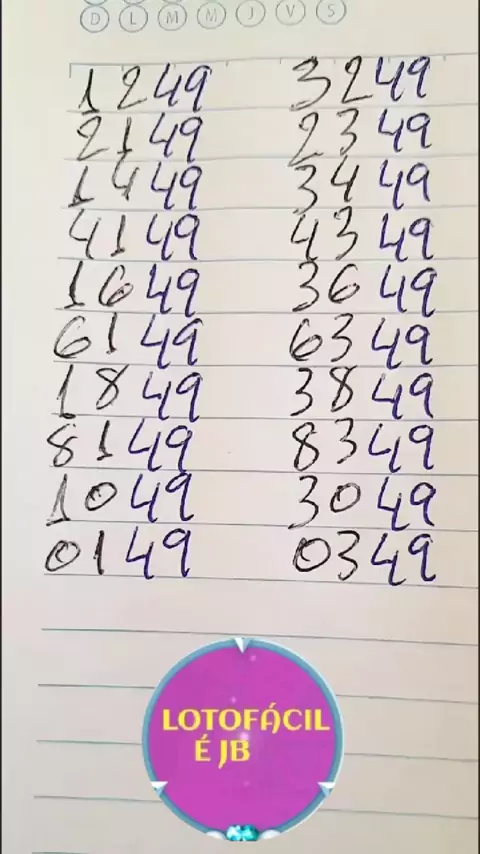 D L M M J V S
1249 3249
2149 2349
1449 3449
4149 4349
1649 3649
6149 6349
1849 3849
8149 8349
1049 3049
0149 0349
LOTOFÁCIL
É JB